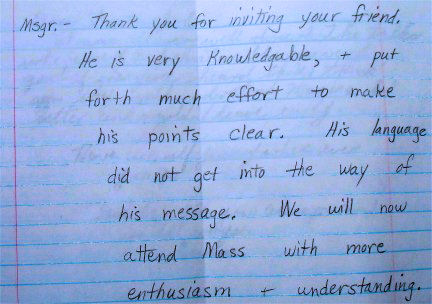 Msgr. - Thank you for inviting your friend.
He is very Knowledgable, + put
forth much effort to make
his points clear. His language
did not get into the way of
his message. We will now
attend Mass with more
enthusiasm + understanding.